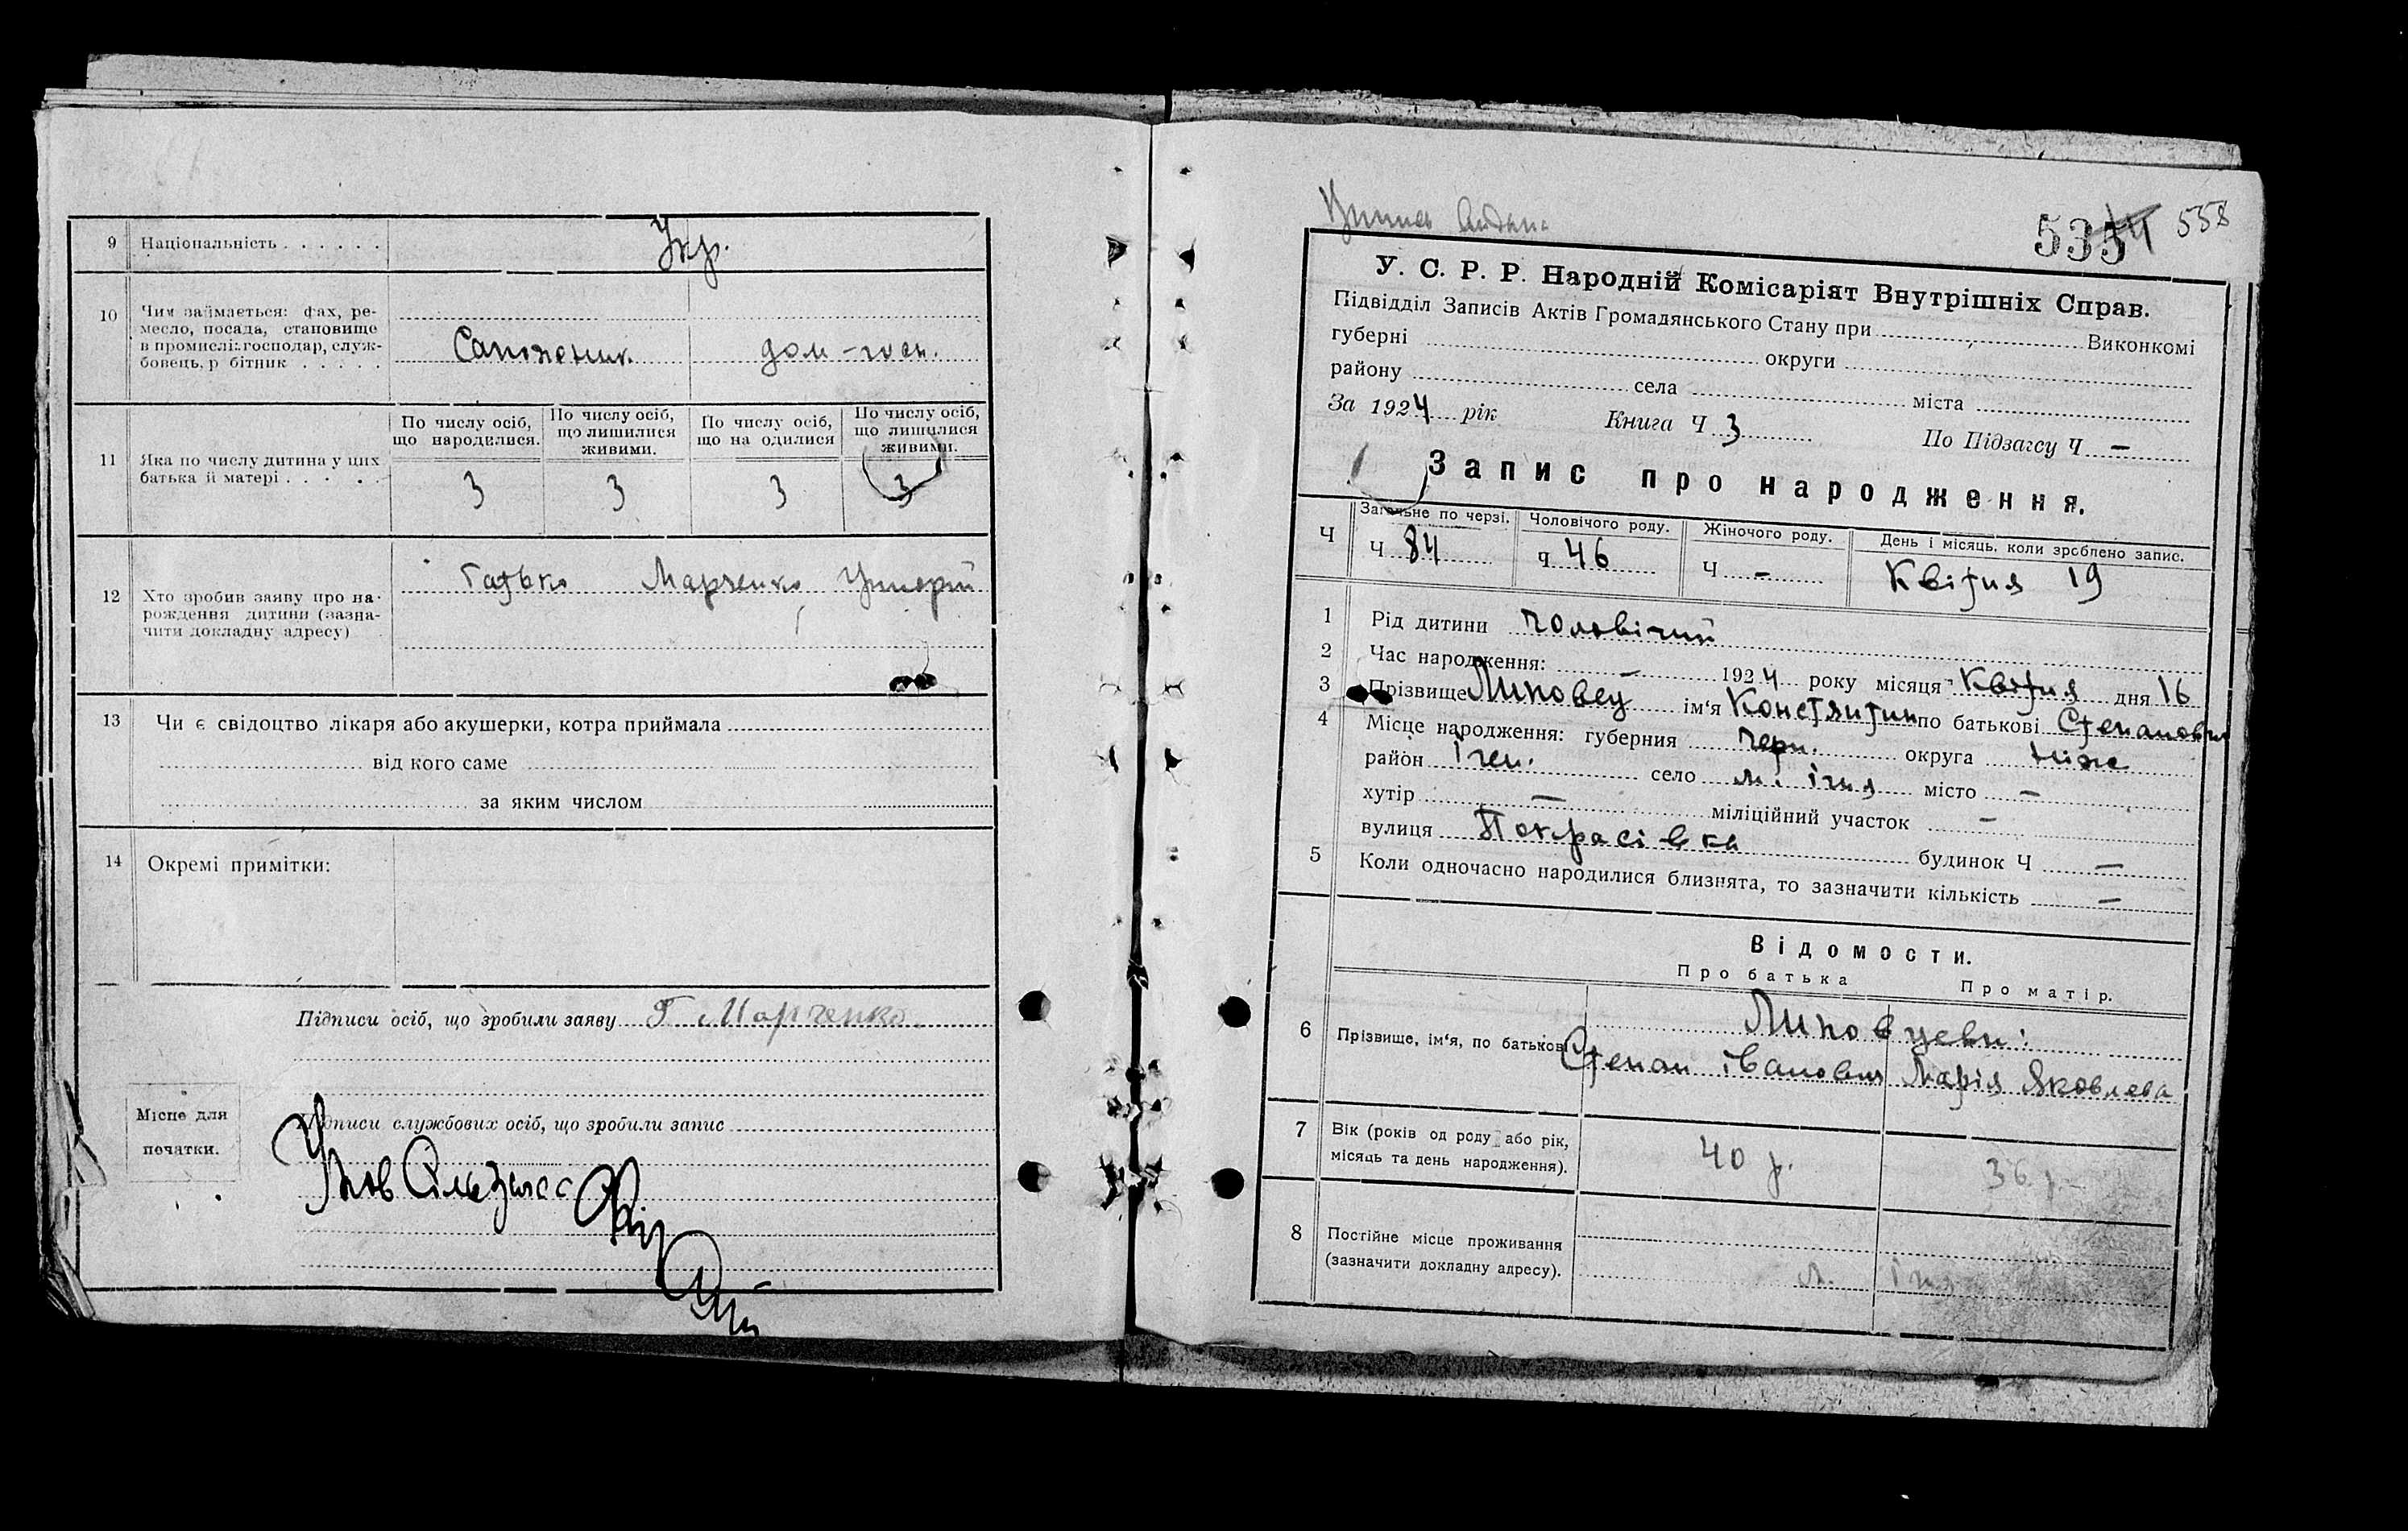 9 Національність . . . . . . Укр.
10 Чим займається: фах, ре-
месло, посада, становище
в промислі: господар, служ-
бовець, р бітник . . . . .
Сапожник. дом-госп.
11 Яка по числу дитина у цих
батька й матері . . . . .
По числу осіб,
що народилися.
По числу осіб,
що лишилися
живими.
По числу осіб,
що на одилися
По числу осіб,
що лишилися
живими.
3 3 3 3
12 Хто зробив заяву про на-
рождення дитини (зазна-
чити докладну адресу)
Батько Марченко
13 Чи є свідоцтво лікаря або акушерки, котра приймала
від кого саме
за яким числом
14 Окремі примітки:
Підписи осіб, що зробили заяву Г Марченко
Місце для
початки.
Підписи службових осіб, що зробили запис
535 4 558
У. С. Р. Р. Народній Комісаріят Внутрішніх Справ.
Підвідділ Записів Актів Громадянського Стану при Виконкомі
губерні округи
району села міста
За 1924 рік Книга Ч 3 По Підзагсу Ч —
Запис про народження.
Ч Загальне по черзі. Чоловічого роду. Жіночого роду. День і місяць, коли зроблено запис.
Ч 84 Ч 46 Ч — Квітня 19
1 Рід дитини чоловічий
2 Час народження: — 1924 року місяця Квітня дня 16
3 Прізвище Липовец ім'я Константин по батькові Степанович
4 Місце народження: губерния Черн. округа Ніже
район Ічен. село м. Ічня місто —
хутір — міліційний участок —
вулиця Покрасівка будинок Ч —
5 Коли одночасно народилися близнята, то зазначити кількість —
Відомости.
Про батька Про матір.
6 Прізвище, ім'я, по батькові
Липовцеви:
Степан Іванович Марія Яковлева
7 Вік (років од роду або рік,
місяць та день народження).
40 р. 36 р.
8 Постійне місце проживання
(зазначити докладну адресу).
м. Ічня